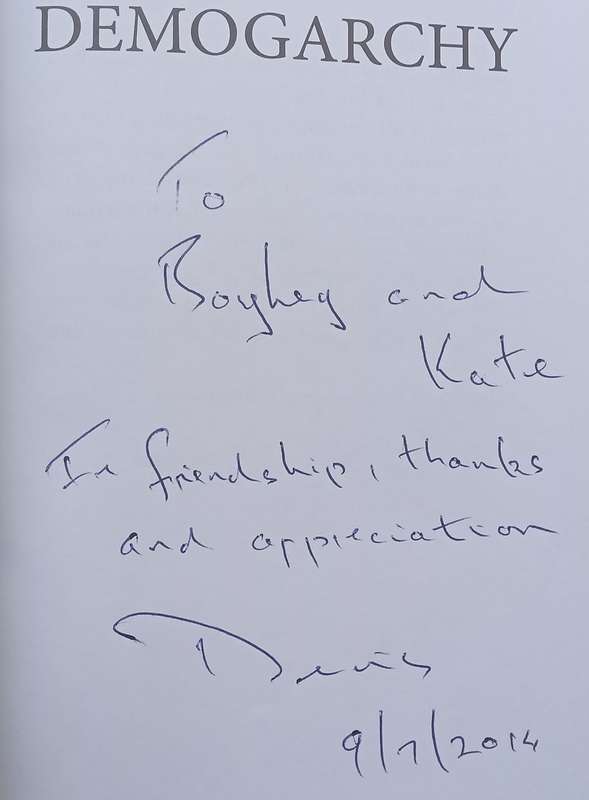 DEMOGARCHY
To
and
Kate
In friendship, thanks
and appreciation
Denis
9/7/2014